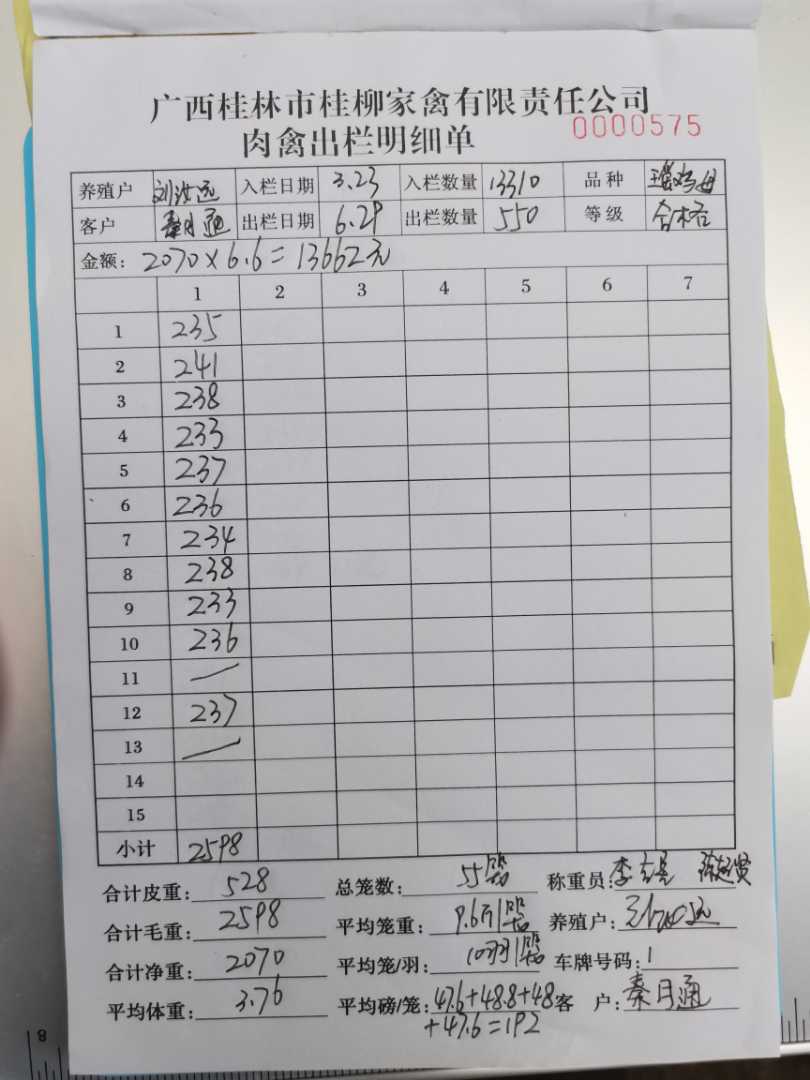 广西桂林市桂柳家禽有限责任公司
肉禽出栏明细单 0000575
养殖户 刘汝远 入栏日期 3.23 入栏数量 13310 品种 瑶鸡母
客户 秦月通 出栏日期 6.29 出栏数量 550 等级 合格
金额: 2070×6.6=13662元
1 2 3 4 5 6 7
1 235
2 241
3 238
4 233
5 237
6 236
7 234
8 238
9 233
10 236
11 —
12 237
13 —
14
15
小计 2598
合计皮重: 528 总笼数: 55笼 称重员:
合计毛重: 2598 平均笼重: 9.6斤/笼 养殖户:
合计净重: 2070 平均笼/羽: 10羽/笼 车牌号码: 1
平均体重: 3.76 平均磅/笼: 47.6+48.8+48 客 户: 秦月通
+47.6=192
8